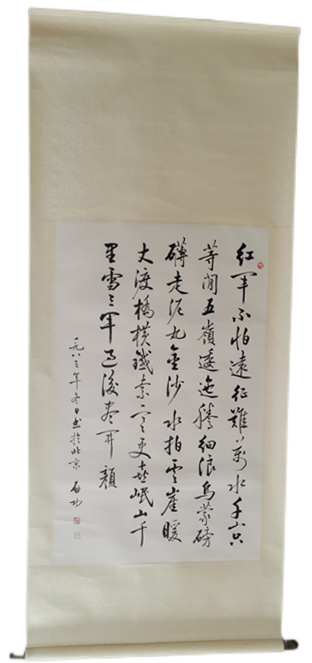 紅軍不怕遠征難萬水千山只
等閒五嶺逶迤騰細浪烏蒙磅
礴走泥丸金沙水拍雲崖暖
大渡橋橫鐵索寒更喜岷山千
里雪三軍過後盡開顏
一九八三年冬日書於北京 启功